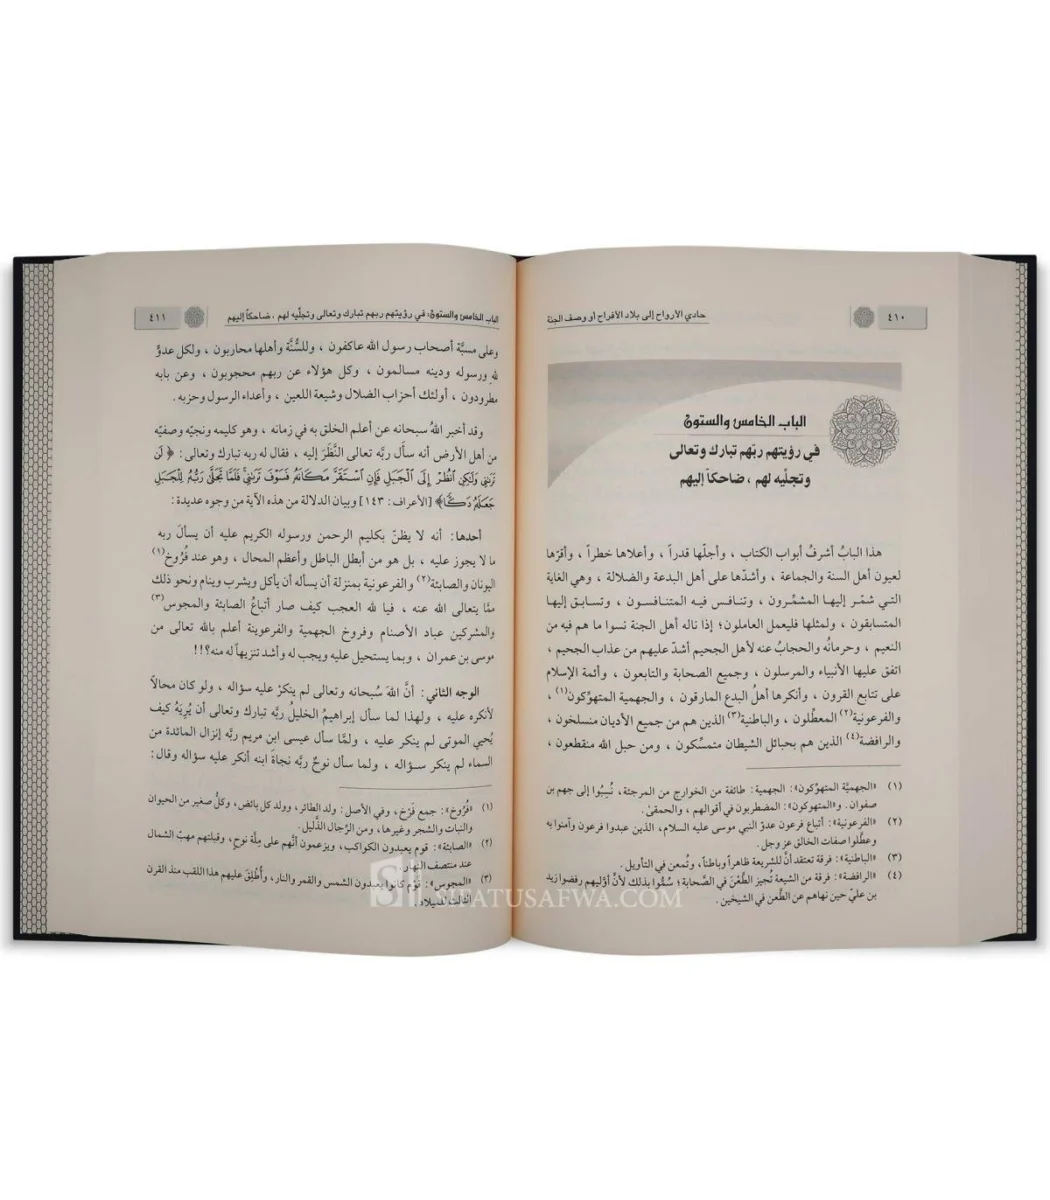 ٤١٠
حادي الأرواح إلى بلاد الأفراح أو وصف الجنة
الباب الخامس والستون
في رؤيتهم ربّهم تبارك وتعالى
وتجلّيه لهم ، ضاحكاً إليهم
هذا البابُ أشرفُ أبواب الكتاب ، وأجلّها قدراً ، وأعلاها خطراً ، وأقرّها
لعيون أهل السنة والجماعة ، وأشدّها على أهل البدعة والضلالة ، وهي الغاية
التي شمّر إليها المشمِّرون ، وتنافس فيه المتنافسون ، وتسابق إليها
المتسابقون ، ولمثلها فليعمل العاملون؛ إذا ناله أهل الجنة نسوا ما هم فيه من
النعيم ، وحرمانُه والحجابُ عنه لأهل الجحيم أشدّ عليهم من عذاب الجحيم ،
اتفق عليها الأنبياء والمرسلون ، وجميع الصحابة والتابعون ، وأئمة الإسلام
على تتابع القرون ، وأنكرها أهلُ البدع المارقون ، والجهمية المتهوّكون(١) ،
والفرعونية(٢) المعطِّلون ، والباطنية(٣) الذين هم من جميع الأديان منسلخون ،
والرافضة(٤) الذين هم بحبائل الشيطان متمسِّكون ، ومن حبل الله منقطعون ،
(١) «الجهميَّة المتهوّكون»: الجهمية: طائفة من الخوارج من المرجئة، نُسِبُوا إلى جهم بن
صفوان. و«المتهوكون»: المضطربون في أقوالهم ، والحمقىٰ.
(٢) «الفرعونية»: أتباع فرعون عدوّ النبي موسى عليه السلام، الذين عبدوا فرعون وآمنوا به
وعطّلوا صفات الخالق عز وجل.
(٣) «الباطنية»: فرقة تعتقد أنَّ للشريعة ظاهراً وباطناً، وتُمعن في التأويل.
(٤) «الرافضة»: فرقة من الشيعة تُجيز الطَّعْنَ في الصَّحابة؛ سُمُّوا بذلك لأنَّ أوَّليهم رفضوا زيد
بن عليّ حين نهاهم عن الطَّعن في الشيخين.
الباب الخامس والستون: في رؤيتهم ربهم تبارك وتعالى وتجلّيه لهم ، ضاحكاً إليهم
٤١١
وعلى مسبَّة أصحاب رسول الله عاكفون ، وللسُّنَّة وأهلها محاربون ، ولكل عدوٍّ
لله ورسوله ودينه مسالمون ، وكل هؤلاء عن ربهم محجوبون ، وعن بابه
مطرودون ، أولئك أحزاب الضلال وشيعة اللعين ، وأعداء الرسول وحزبه.
وقد أخبر اللهُ سبحانه عن أعلم الخلق به في زمانه ، وهو كليمه ونجيّه وصفيّه
من أهل الأرض أنه سأل ربَّه تعالى النَّظَرَ إليه ، فقال له ربه تبارك وتعالى: ﴿ لَن
تَرَىٰنِي وَلَٰكِنِ ٱنظُرْ إِلَى ٱلْجَبَلِ فَإِنِ ٱسْتَقَرَّ مَكَانَهُۥ فَسَوْفَ تَرَىٰنِي ۚ فَلَمَّا تَجَلَّىٰ رَبُّهُۥ لِلْجَبَلِ
جَعَلَهُۥ دَكًّا﴾ [الأعراف: ١٤٣] وبيان الدلالة من هذه الآية من وجوه عديدة:
أحدها: أنه لا يظنّ بكليم الرحمن ورسوله الكريم عليه أن يسألَ ربه
ما لا يجوز عليه ، بل هو من أبطل الباطل وأعظم المحال ، وهو عند فُرُوخ(١)
اليونان والصابئة(٢) والفرعونية بمنزلة أن يسأله أن يأكل ويشرب وينام ونحو ذلك
ممَّا يتعالى الله عنه ، فيا لله العجب كيف صار أتباعُ الصابئة والمجوس(٣)
والمشركين عباد الأصنام وفروخ الجهمية والفرعونية أعلم بالله تعالى من
موسى بن عمران ، وبما يستحيل عليه ويجب له وأشد تنزيهاً له منه؟!!
الوجه الثاني: أنَّ اللهَ سُبحانه وتعالى لم ينكرْ عليه سؤاله ، ولو كان محالاً
لأنكره عليه ، ولهذا لما سأل إبراهيمُ الخليلُ ربَّه تبارك وتعالى أن يُريَهُ كيف
يُحيي الموتى لم ينكر عليه ، ولمَّا سأل عيسى ابن مريم ربَّه إنزال المائدة من
السماء لم ينكر سؤاله ، ولما سأل نوحٌ ربَّه نجاةَ ابنه أنكر عليه سؤاله وقال:
(١) «فُرُوخ»: جمع فَرْخ، وفي الأصل: ولد الطائر، وولد كل بائض، وكلُّ صغير من الحيوان
والنبات والشجر وغيرها، ومن الرِّجال الذَّليل.
(٢) «الصابئة»: قوم يعبدون الكواكب، ويزعمون أنَّهم على مِلَّة نوح، وقبلتهم مهبّ الشمال
عند منتصف النهار.
(٣) «المجوس»: قوم كانوا يعبدون الشمس والقمر والنار، وأُطْلِقَ عليهم هذا اللقب منذ القرن
الثالث للميلاد.
SIFATUSAFWA.COM